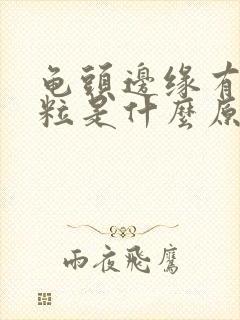 龟頭邊缘有
粒是什麼原
雨夜飛鷹